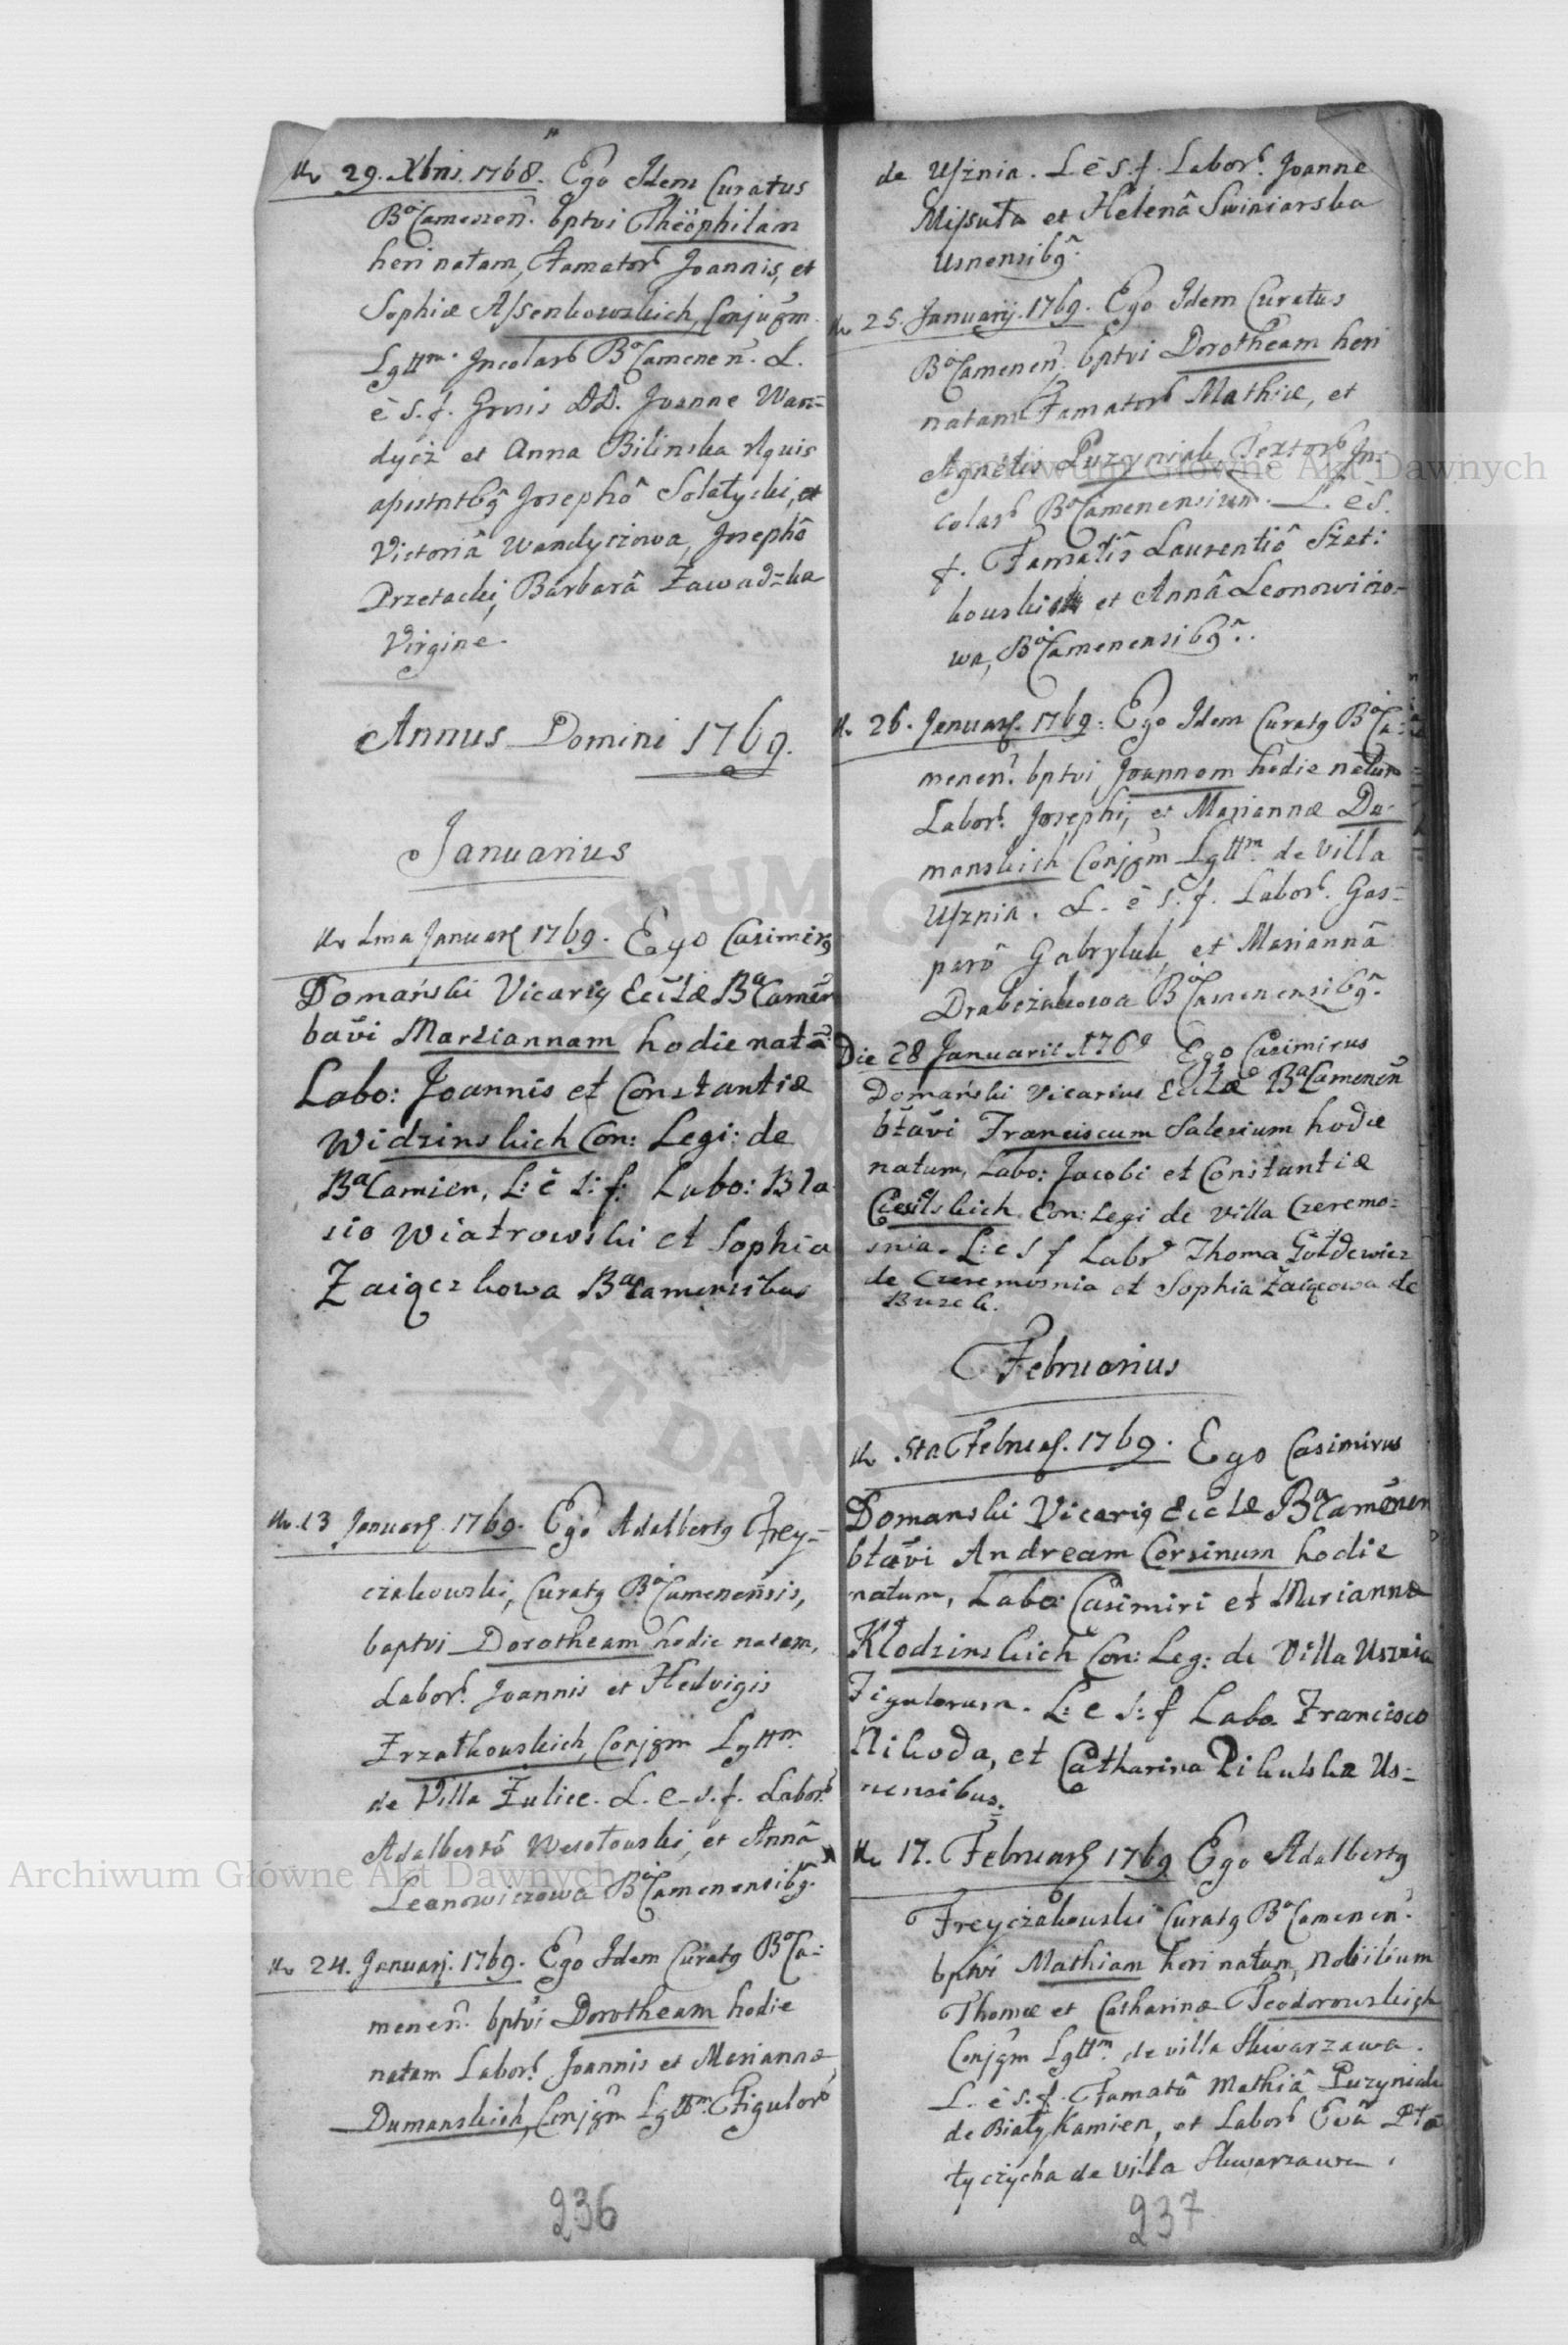 29. Xbris 1768. Ego Idem Curatus
Bo Camenen. bptvi Theophilam
heri natam, Famator Joannis, et
Sophiæ Assenkowskich, Conjugm
Lgttm. Incolar Bo Camenen. L.
è s. f. Grosis DD. Joanne Wan=
dycz et Anna Bilinska Aquis
apstntbg Josephô Solatycki, et
Victoriâ Wandyczowa, Josephô
Przetacki, Barbarâ Zawadzka
Virgine.
Annus Domini 1769.
Januarius
1ma Januar 1769. Ego Casimirg
Domański Vicarig Ecclæ Ba Camen
bavi Mariannam hodie nata
Labo: Joannis et Constantiæ
Widzinskich Con: Legi: de
Ba Camien, L: è s: f: Labo: Bla
sio Wiatrowski et Sophia
Zaiączkowa Ba Camensibus
13 Januar. 1769. Ego Adalbertg Frey=
czakowski, Curatg Bo Camenensis,
baptvi Dorotheam hodie natam,
Labor. Joannis et Hedvigis
Zrzatkowskich, Conjgm Lgttm
de Villa Zulice. L. e s. f. Labor
Adalbertô Wesołowski, et Annâ
Leonowiczowa Bo Camenensibg.
24. Januar. 1769. Ego Idem Curatg Bo Ca=
menen. bptvi Dorotheam hodie
natam Labor. Joannis et Mariannæ
Dumanskich, Conjgm Lgttm. Figulor
236
de Usznia. L è s. f. Labor. Joanne
Missuta et Helenâ Swiniarska
Usnensibg.
25. Januarij. 1769. Ego Idem Curatus
Bo Camenen. bptvi Dorotheam heri
natam Famator Mathiæ, et
Agnetis Puzyniak Textor In=
colar Bo Camenensium. L. è s.
f. Famatis Laurentiô Szat:
kowski et Annâ Leonowiczo=
wa, Bo Camenensibg.
26. Januar. 1769. Ego Idem Curatg Bo Ca=
menen. bptvi Joannem hodie natum
Labor. Josephi, et Mariannæ Du=
manskich Conjgm Lgttm. de Villa
Usznia. L. è s. f. Labor. Gas=
parô Gabryluk, et Mariannâ
Drabczukowa Bo Camenensibg.
Die 28 Januarii 1769 Ego Casimirus
Domański Vicarius Ecclæ Ba Camenen
btavi Franciscum Salesium hodie
natum, Labo: Jacobi et Constantiæ
Con: Legi de Villa Czeremo=
snia. L: e s f Labr Thoma Gołdewicz
de Czeremosnia et Sophia Zaiącowa de
Buzek.
Februarius
5ta Februar. 1769. Ego Casimirus
Domanski Vicarig Eccle Ba Camenen
btavi Andream Corsinum hodie
natum, Labo: Casimiri et Mariannæ
Kłodzinskich Con: Leg: de Villa Usznia
Figulorum. L: e s: f Labo. Francisco
Nikoda, et Catharina Pikulska Us=
nensibus.
17. Februar 1769 Ego Adalbertg
Freyczakowski Curatg Bo Camenen.
bptvi Mathiam heri natum, Nobilium
Thomæ et Catharinæ Teodorowskich
Conjgm Lgttm. de villa Skwarzawa.
L. è s. f. Famatô Mathiâ Puzyniak
de Biały Kamien, et Labor Evâ Pła
tyczycha de Villa Skwarzawa.
237
Archiwum Główne Akt Dawnych
Archiwum Główne Akt Dawnych